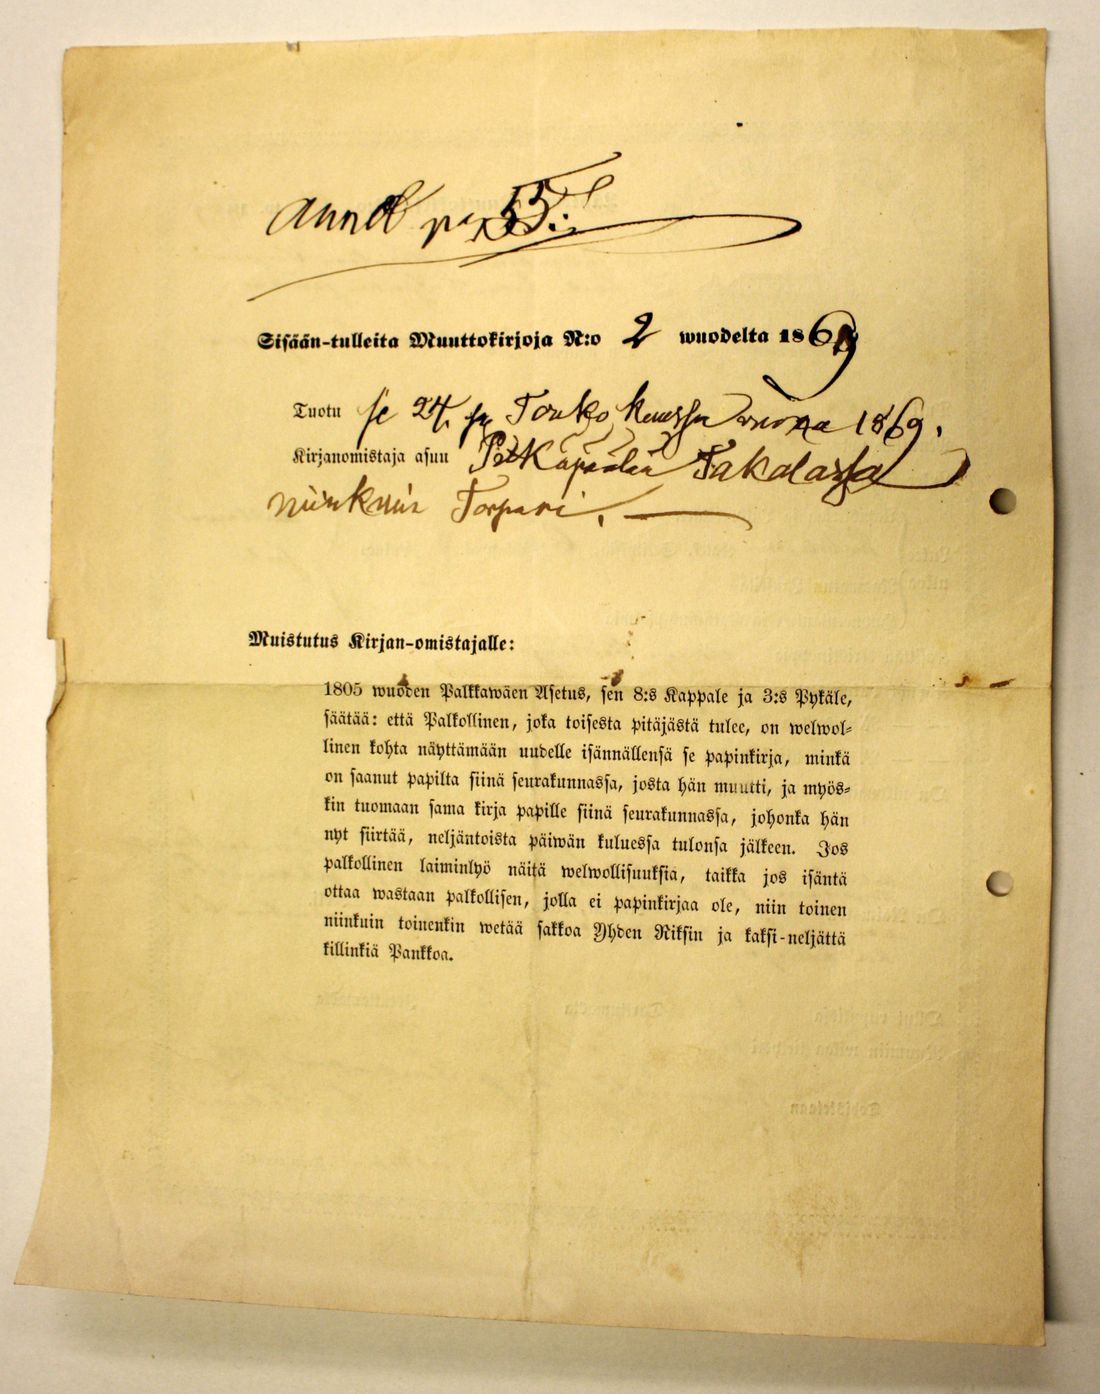 Sisään-tulleita Muuttokirjoja N:o 2 wuodelta 1869
Tuotu se 24. p. Touko kuussa wuona 1869.
Kirjanomistaja asuu Takalassa
niinkuin Torpari.
Muistutus Kirjan-omistajalle:
1805 wuoden Palkkawäen Asetus, sen 8:s Kappale ja 3:s Pykäle,
säätää: että Palkollinen, joka toisesta pitäjästä tulee, on welwol-
linen kohta näyttämään uudelle isännällensä se papinkirja, minkä
on saanut papilta siinä seurakunnassa, josta hän muutti, ja myös-
kin tuomaan sama kirja papille siinä seurakunnassa, johonka hän
nyt siirtää, neljäntoista päiwän kuluessa tulonsa jälkeen. Jos
palkollinen laiminlyö näitä welwollisuuksia, taikka jos isäntä
ottaa wastaan palkollisen, jolla ei papinkirjaa ole, niin toinen
niinkuin toinenkin wetää sakkoa Yhden Riksin ja kaksi-neljättä
killinkiä Pankkoa.